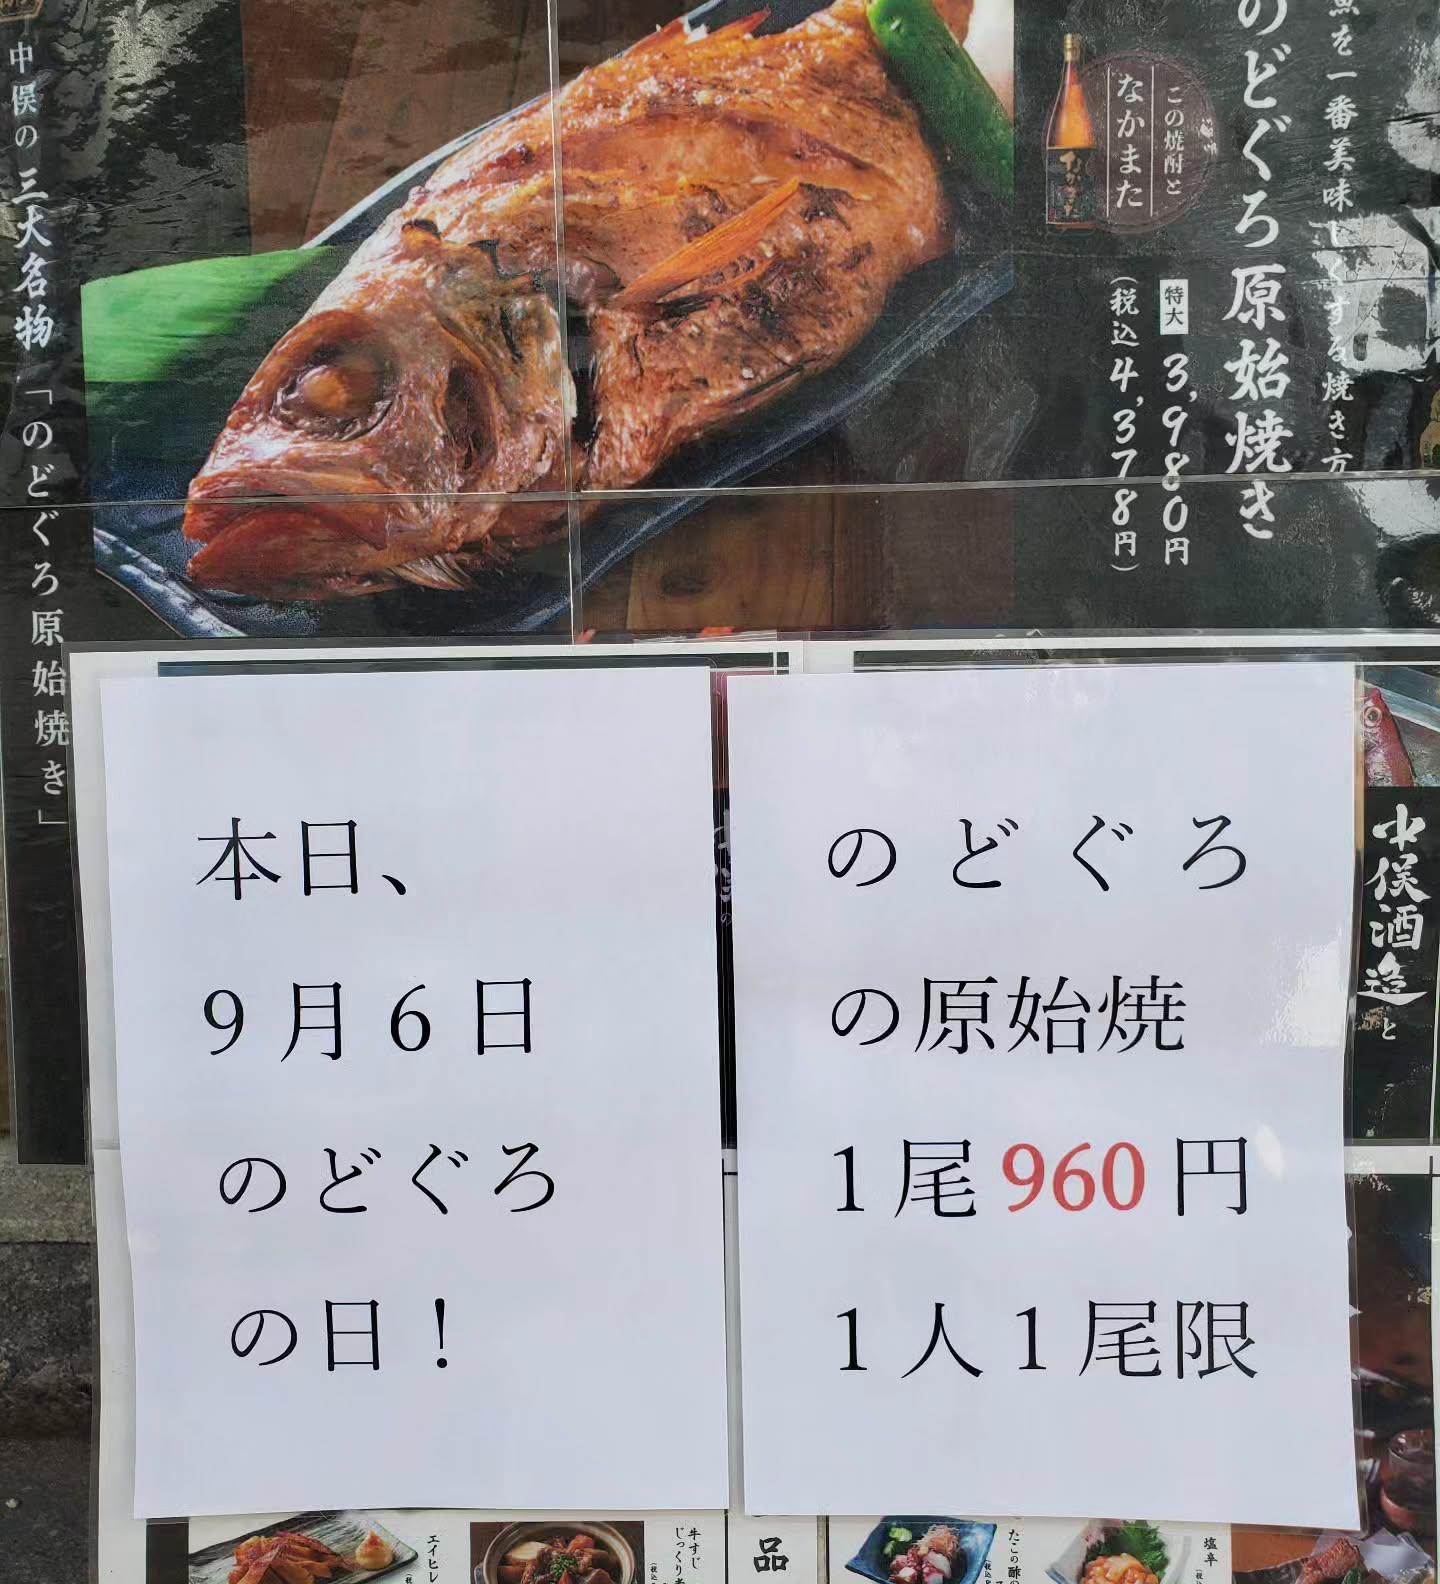 魚を一番美味しくする焼き方
のどぐろ原始焼き
この焼酎と
なかまた
特大 3,980円
(税込4,378円)
中俣の三大名物「のどぐろ原始焼き」
本日、
9月6日
のどぐろ
の日!
のどぐろ
の原始焼
1尾960円
1人1尾限
中俣酒造と
エイヒレ
牛すじ
じっくり
品
たこの酢の
塩辛